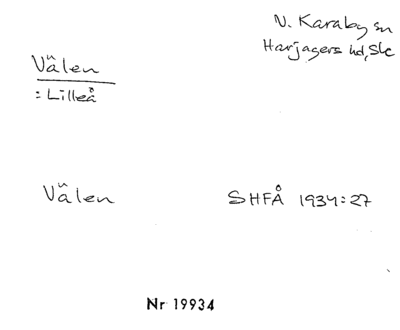 N. Karaby sn
Harjagers hd, Slc
Välen
= Lilleå
Välen
SHFÅ 1934:27
Nr 19934